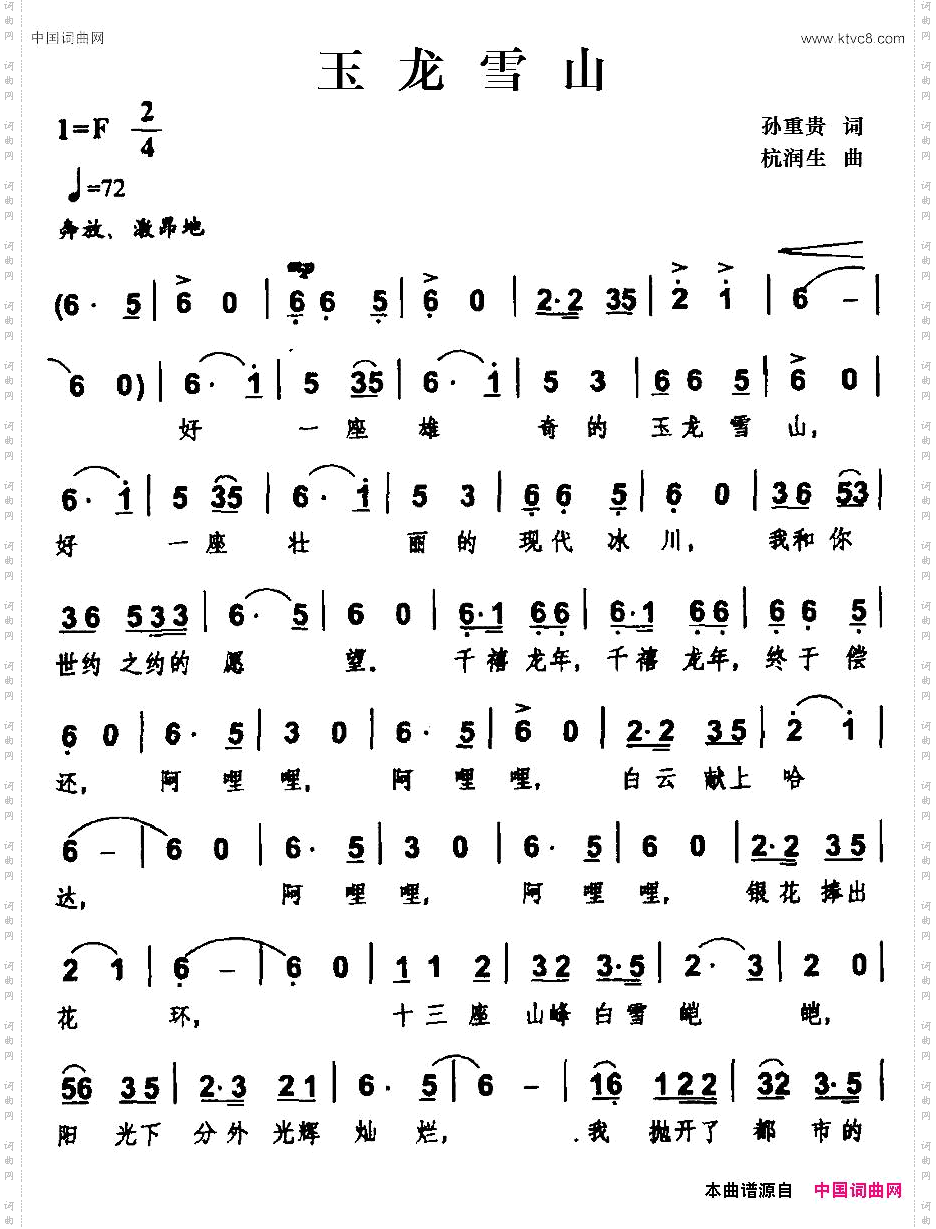 中国词曲网 www.ktvc8.com
玉龙雪山
1=F 2/4
孙重贵 词
杭润生 曲
♩=72
奔放、激昂地
mp
(6· 5 | 6 0 | 6 6 5 | 6 0 | 2·2 35 | 2 1 | 6 – |
6 0) | 6· 1 | 5 35 | 6· 1 | 5 3 | 6 6 5 | 6 0 |
好 一座 雄 奇的 玉龙 雪 山,
6· 1 | 5 35 | 6· 1 | 5 3 | 6 6 5 | 6 0 | 36 53 |
好 一座 壮 丽的 现代 冰 川, 我和你
36 533 | 6· 5 | 6 0 | 6·1 66 | 6·1 66 | 6 6 5 |
世约 之约的 愿 望. 千禧 龙年, 千禧 龙年, 终于 偿
6 0 | 6· 5 | 3 0 | 6· 5 | 6 0 | 2·2 35 | 2 1 |
还, 阿 哩哩, 阿 哩哩, 白云 献上 哈
6 – | 6 0 | 6· 5 | 3 0 | 6· 5 | 6 0 | 2·2 35 |
达, 阿 哩哩, 阿 哩哩, 银花 捧出
2 1 | 6 – | 6 0 | 1 1 2 | 32 3·5 | 2· 3 | 2 0 |
花 环, 十三座 山峰 白雪 皑 皑,
56 35 | 2·3 21 | 6· 5 | 6 – | 16 122 | 32 3·5 |
阳 光下 分外 光辉 灿 烂, 我 抛开了 都 市的
本曲谱源自 中国词曲网